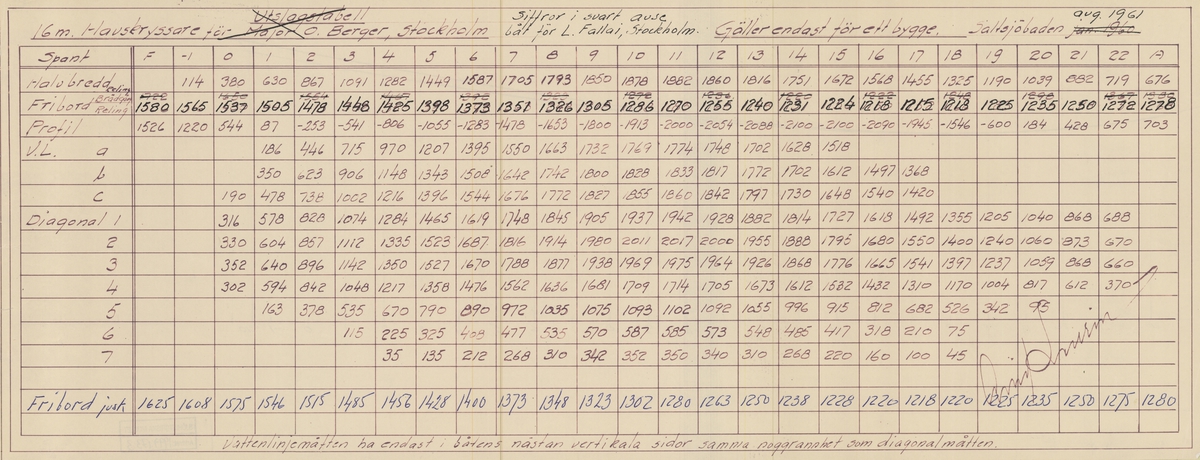 Utslagstabell Siffror i svart avse aug. 1961
16 m. Havskryssare för Major O. Berger, Stockholm båt för L. Fallai, Stockholm. Gäller endast för ett bygge. Saltsjöbaden jan. 1960
Spant F -1 0 1 2 3 4 5 6 7 8 9 10 11 12 13 14 15 16 17 18 19 20 21 22 A
Halvbredd Reling 114 380 630 867 1091 1282 1449 1587 1705 1793 1850 1878 1882 1860 1816 1751 1672 1568 1455 1325 1190 1039 882 719 676
Fribord Brädgång Reling 1530 1565 1537 1505 1478 1448 1425 1398 1373 1351 1326 1305 1286 1270 1255 1240 1231 1224 1218 1215 1213 1225 1235 1250 1272 1278
Profil 1526 1220 544 87 -253 -541 -806 -1055 -1283 -1478 -1653 -1800 -1913 -2000 -2054 -2088 -2100 -2100 -2090 -1945 -1546 -600 184 428 675 703
V.L. a 186 446 715 970 1207 1395 1550 1663 1732 1769 1774 1748 1702 1628 1518
b 350 623 906 1148 1343 1508 1642 1742 1800 1828 1833 1817 1772 1702 1612 1497 1368
c 190 478 738 1002 1216 1396 1544 1676 1772 1827 1855 1860 1842 1797 1730 1648 1540 1420
Diagonal 1 316 578 828 1074 1284 1465 1619 1748 1845 1905 1937 1942 1928 1882 1814 1727 1618 1492 1355 1205 1040 868 688
2 330 604 857 1112 1335 1523 1687 1816 1914 1980 2011 2017 2000 1955 1888 1795 1680 1550 1400 1240 1060 873 670
3 352 640 896 1142 1350 1527 1670 1788 1877 1938 1969 1975 1964 1926 1868 1776 1665 1541 1397 1237 1059 868 660
4 302 594 842 1048 1217 1358 1476 1562 1636 1681 1709 1714 1705 1673 1612 1532 1432 1310 1170 1004 817 612 370
5 163 378 535 670 790 890 972 1035 1075 1093 1102 1092 1055 996 915 812 682 526 342 95
6 115 225 325 408 477 535 570 587 585 573 548 485 417 318 210 75
7 35 135 212 268 310 342 352 350 340 310 268 220 160 100 45
Fribord just 1625 1608 1575 1546 1515 1485 1456 1428 1400 1373 1348 1323 1302 1280 1263 1250 1238 1228 1220 1218 1220 1225 1235 1250 1275 1280
Vattenlinjemåtten ha endast i båtens nästan vertikala sidor samma noggrannhet som diagonalmåtten.